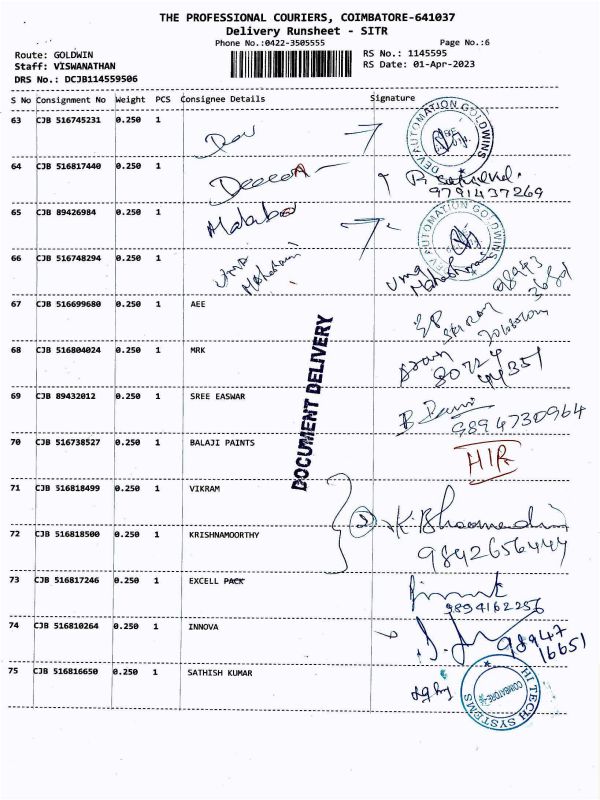 THE PROFESSIONAL COURIERS, COIMBATORE-641037
Delivery Runsheet - SITR
Phone No.:0422-3505555 Page No.:6
Route: GOLDWIN RS No.: 1145595
Staff: VISWANATHAN RS Date: 01-Apr-2023
DRS No.: DCJB114559506
S No Consignment No Weight PCS Consignee Details Signature
63 CJB 516745231 0.250 1 DEV AUTOMATION GOLDWINS
64 CJB 516817440 0.250 1
9791437269
65 CJB 89426984 0.250 1 DEV AUTOMATION GOLDWINS
66 CJB 516748294 0.250 1 Uma
98943
67 CJB 516699680 0.250 1 AEE
68 CJB 516804024 0.250 1 MRK
80724
44351
69 CJB 89432012 0.250 1 SREE EASWAR
9894730964
DOCUMENT DELIVERY
70 CJB 516738527 0.250 1 BALAJI PAINTS HIR
71 CJB 516818499 0.250 1 VIKRAM
72 CJB 516818500 0.250 1 KRISHNAMOORTHY
9842656444
73 CJB 516817246 0.250 1 EXCELL PACK
9894162256
74 CJB 516810264 0.250 1 INNOVA
98947
16651
75 CJB 516816650 0.250 1 SATHISH KUMAR
HI TECH SYSTEMS COIMBATORE